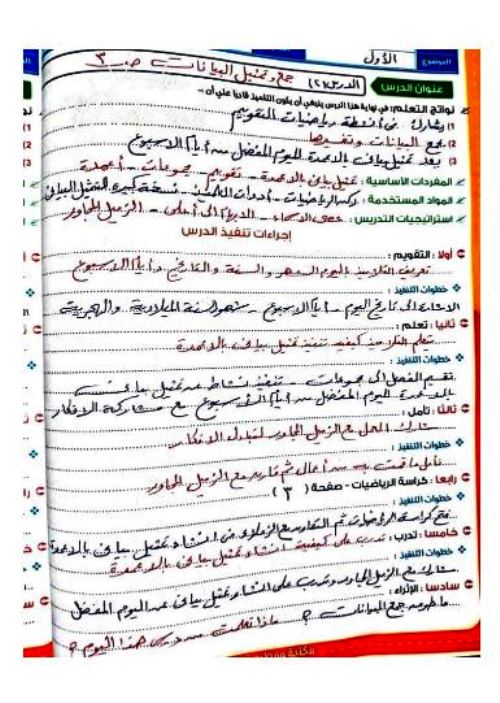 الموضوع الأول
عنوان الدرس الدرس (٢١) جمع وتمثيل البيانات صـ ٣
نواتج التعلم: في نهاية هذا الدرس ينبغي أن يكون التلميذ قادرا علي أن :-
1) يشارك في أنشطة رياضيات التقويم
2) يجمع البيانات وتفسيرها
3) يعد تمثيل بياني بالأعمدة لليوم المفضل من أيام الاسبوع
المفردات الأساسية : تمثيل بياني بالأعمدة - تقويم - مجموعات - أعمدة
المواد المستخدمة : ركن الرياضيات - أدوات التلاميذ - نسخة كبيرة للتمثيل البياني
استراتيجيات التدريس : عصى الاسماء - الايدي الى أعلى - الزميل المجاور
إجراءات تنفيذ الدرس
أولا : التقويم :
تعريف التلاميذ باليوم والشهر والسنة والتاريخ وأيام الاسبوع
خطوات التنفيذ :
الاشارة الى تاريخ اليوم - أيام الاسبوع - شهور السنة الميلادية والهجرية
ثانيا : تعلم :
يتعلم التلاميذ كيفية تنفيذ تمثيل بياني بالاعمدة
خطوات التنفيذ :
تقسيم الفصل الى مجموعات - تنفيذ نشاط عن تمثيل بياني
بالاعمدة لليوم المفضل من أيام الأسبوع مع مشاركة الافكار
ثالثا : تأمل :
مشاركة العمل مع الزميل المجاور لتبادل الافكار
خطوات التنفيذ :
تأمل ما قمت به من أعمال ثم شارك مع الزميل المجاور
رابعا : كراسة الرياضيات - صفحة ( ٣ )
خطوات التنفيذ :
فتح كراسة الرياضيات ثم التعاون مع الزملاء في انشاء تمثيل بياني بالاعمدة
خامسا : تدرب : تدرب على كيفية انشاء تمثيل بياني بالاعمدة
خطوات التنفيذ :
شارك مع الزميل المجاور وتدرب على انشاء تمثيل بياني عن اليوم المفضل
سادسا : الإثراء :
ما طرق جمع البيانات ؟ ماذا تعلمت من درس هذا اليوم ؟